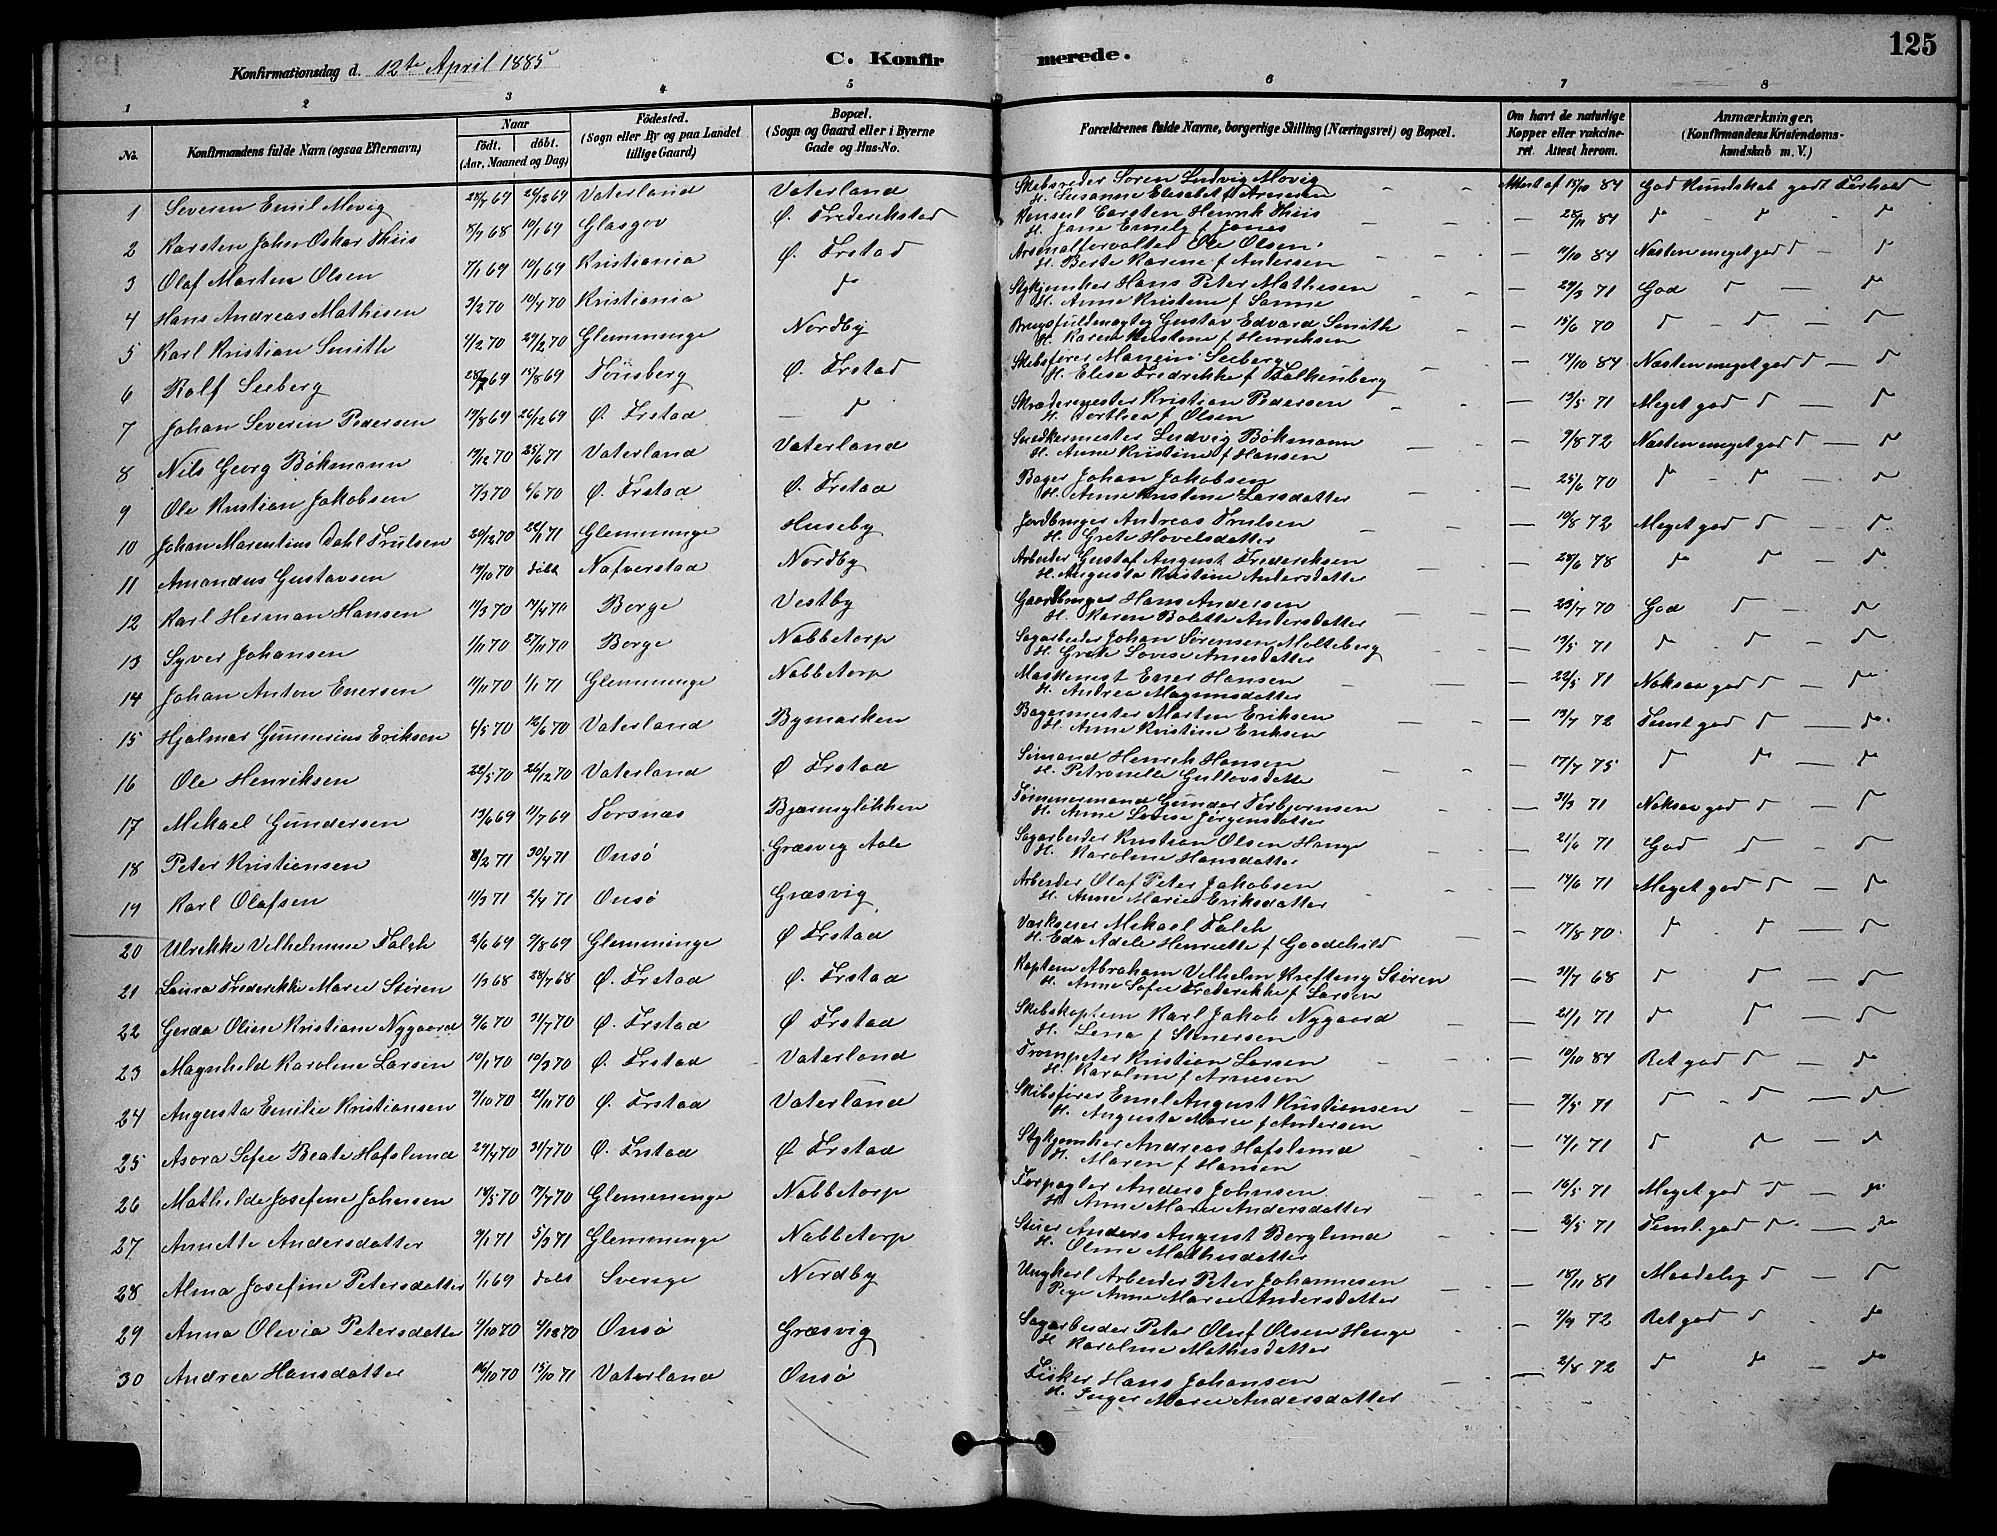 125
Konfirmationsdag d. 12te April 1885
C. Konfirmerede.
1 2 3 4 5 6 7 8
No. Konfirmandens fulde Navn (ogsaa Efternavn) Naar født. døbt. (Aar, Maaned og Dag) Fødested. (Sogn eller By og paa Landet tillige Gaard) Bopæl. (Sogn og Gaard eller i Byerne Gade og Hus-No. Forældrenes fulde Navne, borgerlige Stilling (Næringsvei) og Bopæl. Om havt de naturlige Kopper eller vakcineret. Attest herom. Anmærkninger. (Konfirmandens Kristendomskundskab m. V.)
1 Severin Emil Movig 69 69 Vaterland Vaterland Skibsreder Søren Ludvig Movig Attest af 15/10 84 God Kundskab godt Forhold
H. Susanne Elisabet f Arnesen
2 Karsten John Oskar Thiis 8/7 68 10/1 69 Glasgov Ø. Frederikstad Konsul Carsten Henrik Thiis 84 d d d
H. Jane Emily f Jones
3 Olaf Martin Olsen 7/1 69 10/1 69 Kristiania Ø. Frstad Arsenalforvalter Ole Olsen 84 Næsten meget god d d
H. Berte Karene f Andersen
4 Hans Andreas Mathisen 3/2 70 10/4 70 Kristiania d Stykjunker Hans Peter Mathesen 29/3 71 God d d
H. Anne Kristine f Sanne
5 Karl Kristian Smith 70 70 Glemminge Nordby Brugsfuldmægtig Gustav Edvard Smith 15/6 70 d d d
H. Karen Kristene f Henriksen
6 Rolf Seeberg 69 69 Tønsberg Ø. Frstad Skibsfører Seeberg 84 Næsten meget god d d
H. Elise Fredrikke f Falkenberg
7 Johan Severin Pedersen 69 69 Ø. Frstad d Skrædermester Kristian Pedersen 13/5 71 Meget god d d
H. Dorthea f Olsen
8 Nils Georg Bøkmann 70 25/6 71 Vaterland Vaterland Snedkermester Ludvig Bøkmann 9/8 72 Næsten meget god d d
H. Anne Kristine f Hansen
9 Ole Kristian Jakobsen 7/3 70 6/6 70 Ø. Frstad Ø. Frstad Bager Johan Jakobsen 25/6 70 d d d
H. Anne Kristine Larsdatter
10 Johan Marentius Dahl Trulsen 20/12 70 71 Glemminge Huseby Jordbruger Andreas Trulsen 72 Meget god d d
H. Grete Hovelsdatter
11 Amandus Gustavsen 70 døbt Nafverstad Nordby Arbeider Gustaf August Frederiksen 28/6 78 d d d
H. Augusta Kristine Andersdatter
12 Karl Herman Hansen 70 70 Borge Vestby Gaardbruger Hans Andersen 23/7 70 God d d
H. Karen Bolette Andersdatter
13 Syver Johansen 1/11 70 27/11 70 Borge Nabbetorp Sagarbeider Johan Sørensen Molteberg 13/5 71 d d d
H. Grete Lovise Arnesdatter
14 Johan Anton Enersen 11/11 70 1/1 71 Glemminge Nabbetorp Maskinist Ener Hansen 22/5 71 Noksaa god d d
H. Andrea Magnusdatter
15 Hjalmar Gunnerius Eriksen 4/5 70 12/6 70 Vaterland Bymarken Bagermester Martin Eriksen 13/7 72 Teml. god d d
H. Anne Kristine Eriksen
16 Ole Henriksen 22/5 70 26/12 70 Vaterland Ø Frstad Sømand Henrik Hansen 17/7 75 d d d
H. Petronelle Gullovsdatter
17 Mikael Gundersen 13/6 69 11/7 69 Torsnæs Bjørnsløkken Tømmermand Gunder Torbjørnsen 31/3 71 Noksaa god d d
H. Anne Lovise Jørgensdatter
18 Peter Kristiansen 8/2 71 30/4 71 Onsø Græsvig Aale Sagarbeider Kristian Olsen Henge 21/6 71 God d d
H. Karoline Hansdatter
19 Karl Olafsen 11/3 71 2/4 71 Onsø Græsvig Arbeider Olaf Peter Jakobsen 14/6 71 Meget god d d
H. Anne Marie Eriksdatter
20 Ulrikke Vilhelmine Falck 2/6 69 69 Glemminge Ø Frstad Værkseier Mikael Falck 17/8 70 d d d
H. Eda Adele Henriette f Goodchild
21 Laura Frederikke Marie Støren 1/3 68 28/7 68 Ø. Frstad Ø. Frstad Kaptein Abraham Vilhelm Krefting Støren 31/7 68 d d d
H. Anne Sofie Frederikke f Larsen
22 Gerda Olise Kristiane Nygaard 9/6 70 31/7 70 Ø. Frstad Ø Frstad Skibskaptein Karl Jakob Nygaard 21/1 71 d d d
H. Lena f Stenersen
23 Magnhild Karoline Larsen 10/1 70 10/3 70 Ø. Frstad Vaterland Trompeter Kristian Larsen 10/10 84 Ret god d d
H. Karoline f Arnesen
24 Augusta Emilie Kristiansen 9/10 70 21/11 70 Ø. Frstad Vaterland Skibsfører Emil August Kristiansen 71 d d d
H. Augusta Marie f Andersen
25 Asora Sofie Beate Hafslund 24/4 70 31/7 70 Ø. Frstad Ø Frstad Stykjunker Andreas Hafslund 71 d d d
H. Maren f Hansen
26 Mathilde Josefine Johnsen 70 70 Glemminge Nabbetorp Forpagter Anders Johnsen 16/5 71 Meget god d d
H. Anne Marie Andersdatter
27 Annette Andersdatter 9/1 71 5/3 71 Glemminge Nabbetorp Anders August Berglund 2/5 71 Teml. god d d
H. Oline Mathisdatter
28 Alma Josefine Petersdatter 1/1 69 døbt Sverige Nordby Ungkarl Arbeider Peter Johannesen 18/11 81 Maadelig d d
Pige Anne Marie Andersdatter
29 Anna Olevia Petersdatter 9/10 70 4/12 70 Onsø Græsvig Sagarbeider Peter Oluf Olsen Henge 72 Ret god d d
H. Karoline Mathisdatter
30 Andrea Hansdatter 16/10 70 15/10 71 Vaterland Onsø Fisker Hans Johansen 2/8 72 d d d
H. Inger Marie Andersdatter